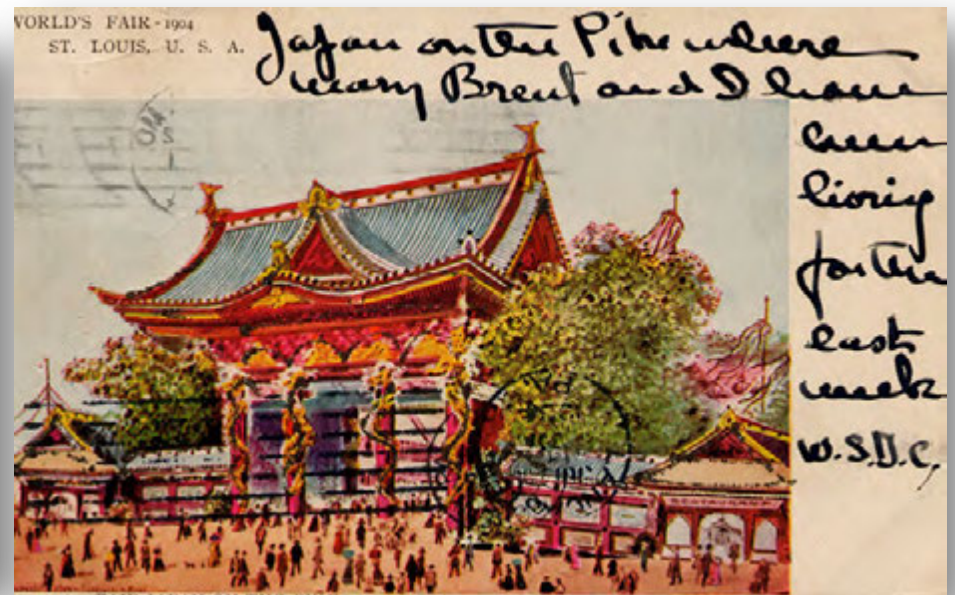 WORLD'S FAIR - 1904
ST. LOUIS, U. S. A.
Japan on the Pike where
Mary Brent and I have
been
living
for the
last
week
W.S.D.C.